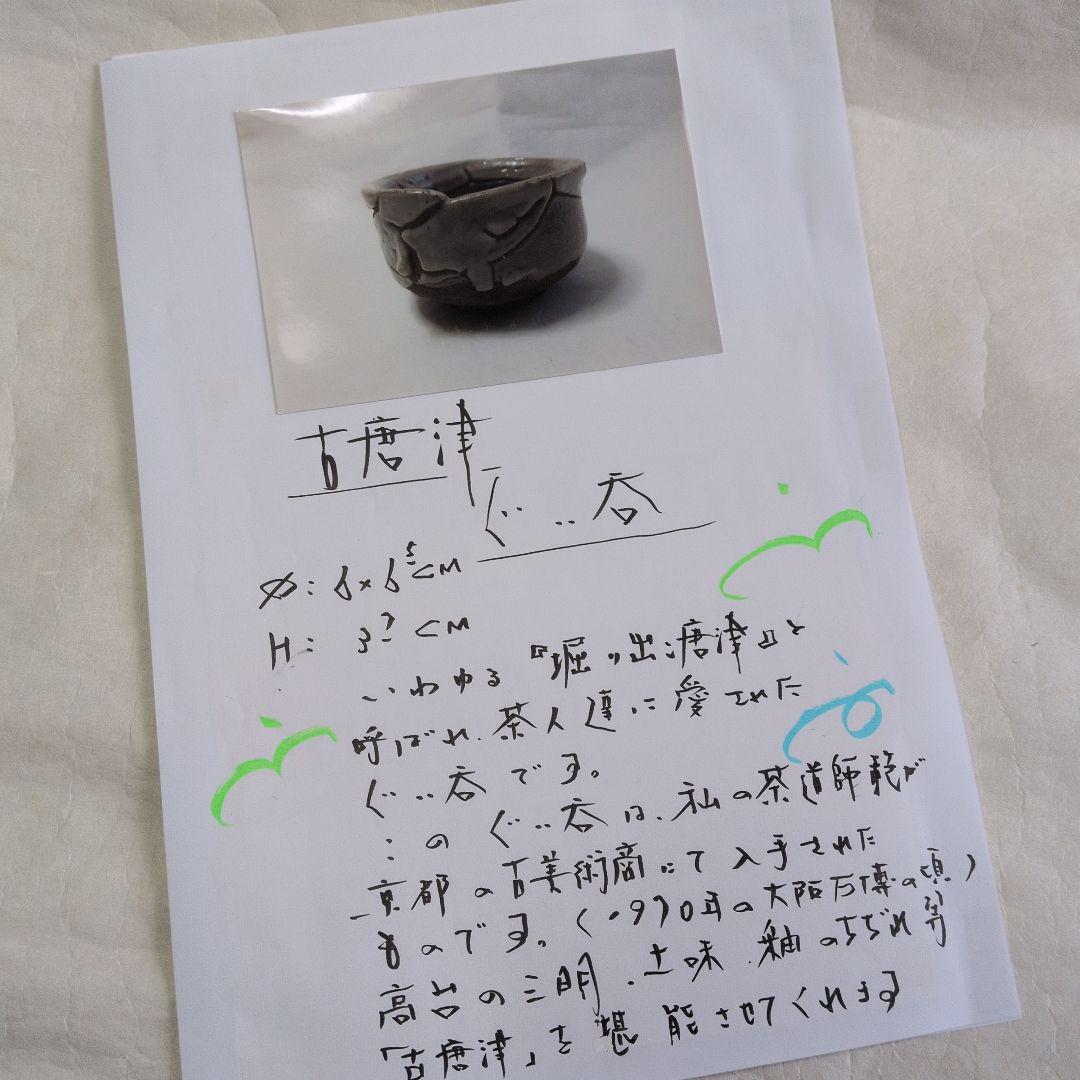 古唐津
ぐい呑
Ø: 6×6.5cm
H: 3.7cm
いわゆる『堀り出唐津』と
呼ばれ、茶人達に愛された
ぐい呑です。
この ぐい呑は、私の茶道師範が
京都の古美術商にて入手された
ものです。(1970年の大阪万博の頃)
高台の三日月、土味、釉のちぢれ等
「古唐津」を堪能させてくれます